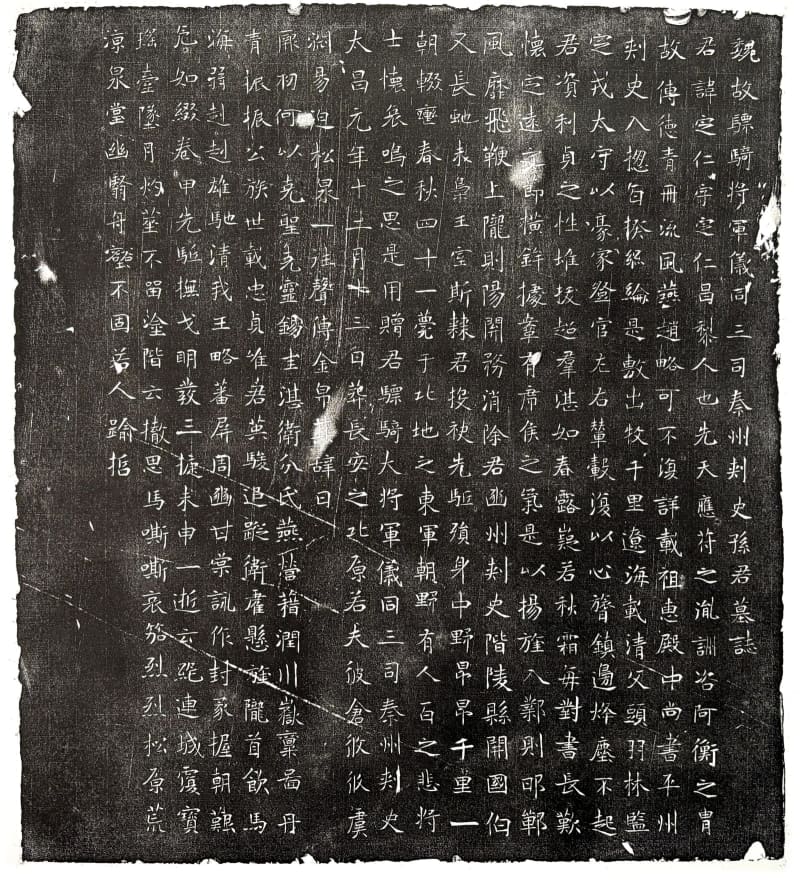 魏故驃騎將軍儀同三司秦州刾史孫君墓誌
君諱定仁字定仁昌黎人也先天應符之胤訓咨阿衡之胄
故傳徳青冊流風燕趙略可不復詳載祖恵殿中尚書平州
刾史入揔百揆絲綸是敷出牧千里遼海載清父頭羽林監
定戎太守以豪家登官左右輦轂復以心膂鎮邊烽塵不起
君資利貞之性堆拔超羣湛如春露嶷若秋霜每對書長歎
懷定遠之節横鉾據鞌有席侯之氣是以揚旌入鄴則邯鄲
風靡飛鞭上隴則陽開務消除君豳州刾史階陵縣開國伯
又長虵未梟王室斯隸君投袂先駈殞身中野昂昂千里一
朝輟鑣春秋四十一薨于北地之東軍朝野有人百之悲將
士懷衆嗚之思是用贈君驃騎大將軍儀同三司秦州刾史
太昌元年十二月十三日葬長安之北原若夫彼倉攸攸虞
渕易迫松泉一往聲傳金帛辞曰
廓初何以克聖克靈錫圭淇衛分氏燕營藉潤川嶽稟啚丹
青振振公族世載忠貞惟君英駿追蹤衛霍懸旌隴首飲馬
海弱赳赳雄馳清我王略蕃屏周豳甘棠訊作封豕握朝艱
危如綴卷甲先駈撫戈明發三㨗未申一逝云繞連城覆寶
瑶臺墜月灼華不畱塗階云撤思馬嘶嘶哀笳烈烈松原荒
涼泉堂幽翳舟壑不固若人踰哲